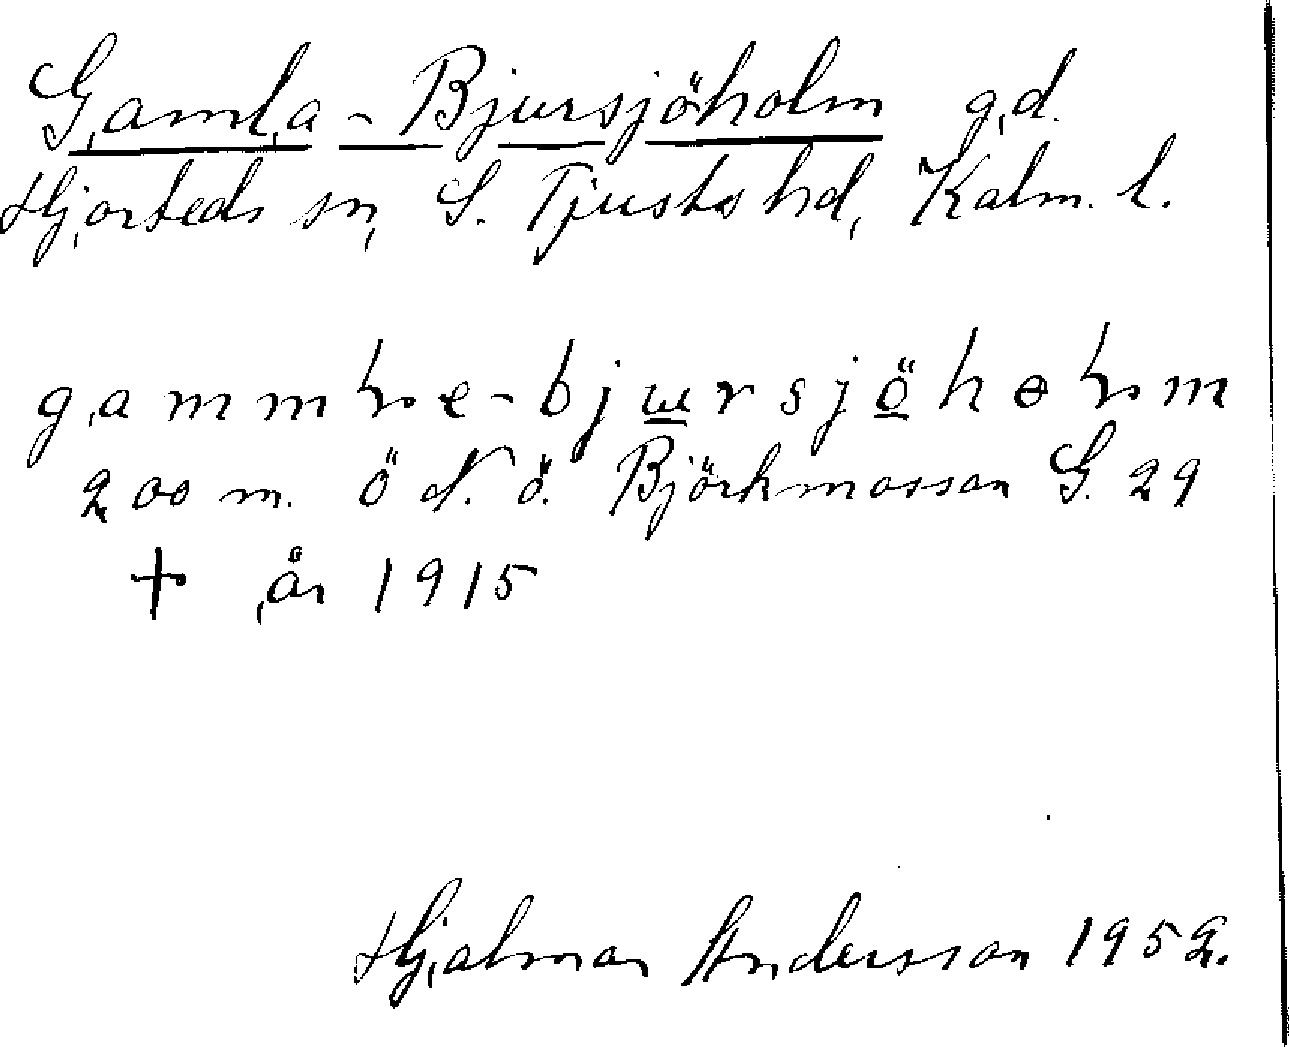 Gamla-Bjursjöholm gd.
Hjorteds sn, S. Tjusts hd, Kalm. l.
gammɫe-bjursjöhɵɫm
200 m. ö N. ö. Björkmossan G. 29
† år 1915
Hjalmar Andersson 1952.